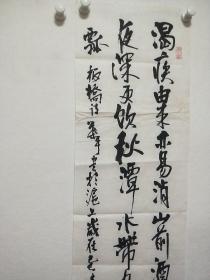 渴疾由來亦易消山前酒
夜深更飲秋潭水帶
瓢 板橋詩 書於滬上歲在